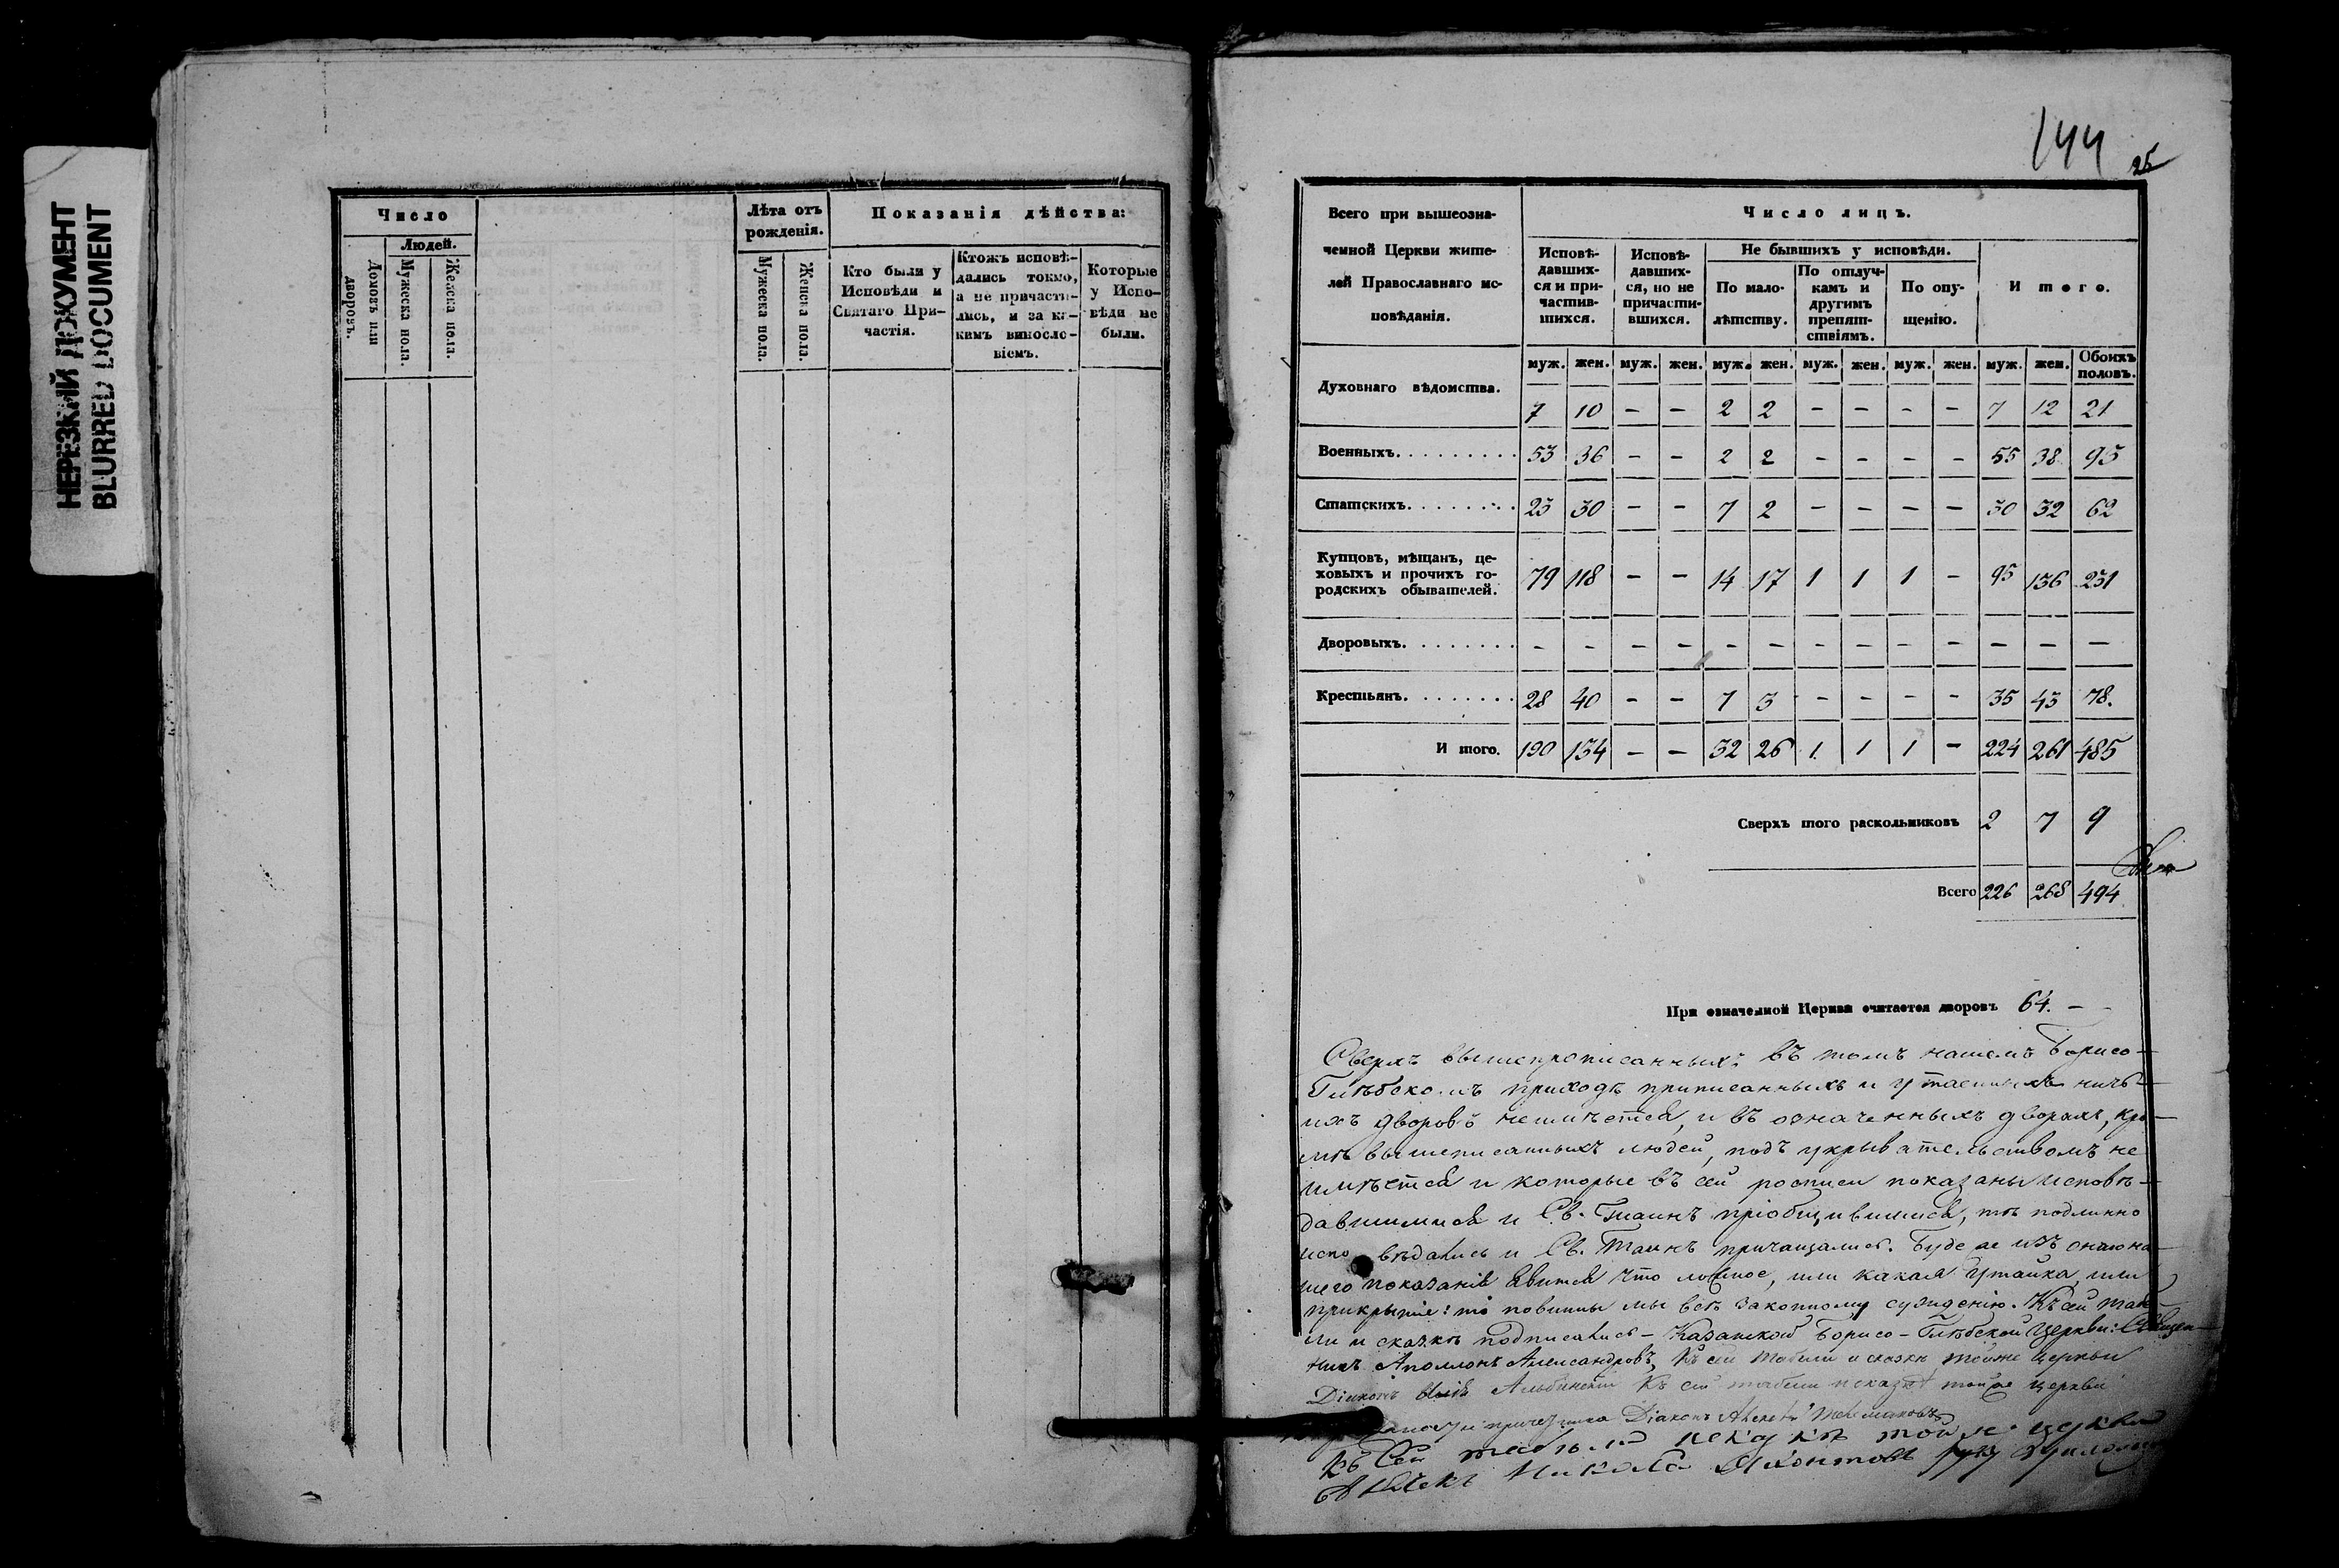 НЕРЕЗКИЙ ДОКУМЕНТ
BLURRED DOCUMENT
Число
Людей.
Домовъ или дворовъ.
Мужеска пола.
Женска пола.
Лѣта отъ
рожденія.
Мужеска пола.
Женска пола.
Показанія дѣйства:
Кто были у
Исповѣди и
Святаго При-
частія.
Ктожъ исповѣ-
дались токмо,
а не причасти-
лись, и за ка-
кимъ винosло-
віемъ.
Которые
у Испо-
вѣди не
были.
144
25
Всего при вышеозна-
ченной Церкви жите-
лей Православнаго ис-
повѣданія.
Число лицъ.
Исповѣ-
давших-
ся и при-
частив-
шихся.
Исповѣ-
давших-
ся, но не
причасти-
вшихся.
Не бывшихъ у исповѣди.
По мало-
лѣтству.
По отлуч-
камъ и
другимъ
препят-
ствіямъ.
По опу-
щенію.
Итого.
муж. жен. муж. жен. муж. жен. муж. жен. муж. жен. муж. жен. Обоихъ половъ.
Духовнаго вѣдомства. 7 10 - - 2 2 - - - - 7 12 21
Военныхъ. 53 36 - - 2 2 - - - - 55 38 93
Статскихъ. 23 30 - - 7 2 - - - - 30 32 62
Купцовъ, мѣщанъ, це-
ховыхъ и прочихъ го-
родскихъ обывателей. 79 118 - - 14 17 1 1 1 - 95 136 231
Дворовыхъ. - - - - - - - - - - - - -
Крестьянъ. 28 40 - - 7 3 - - - - 35 43 78.
И того. 190 134 - - 32 26 1 1 1 - 224 261 485
Сверхъ того раскольниковъ 2 7 9
Всего 226 268 494
При означенной Церкви считается дворовъ 64. -
Сверхъ вышепрописанныхъ въ томъ нашемъ Борисо-
Глѣбскомъ приходѣ приписанныхъ и утаенныхъ ничь-
ихъ дворовъ неимѣется, и въ означенныхъ дворахъ, кро-
мѣ вышеписанныхъ людей, подъ укрывательствомъ не
имѣется и которые въ сей росписи показаны исповѣ-
давшимися и Св. Таинъ пріобщившимися, тѣ подлинно
исповѣдались и Св. Таинъ причащались. Буде же изъ онаго на-
шего показанія явится что ложное, или какая утайка, или
прикрытіе: то повинны мы всѣ законному сужденію. Къ сей табе-
ли и сказкѣ подписались - Казанской Борисо-Глѣбской Церкви: Священ-
никъ Аполлонъ Александровъ, Къ сей табели и сказкѣ тойже церкви
Діаконъ Альбинскій Къ сей табели и сказкѣ тойже церкви
причетника Діаконъ Алексѣй
Къ сей табели и сказкѣ тойже церкви
Никола руку приложилъ